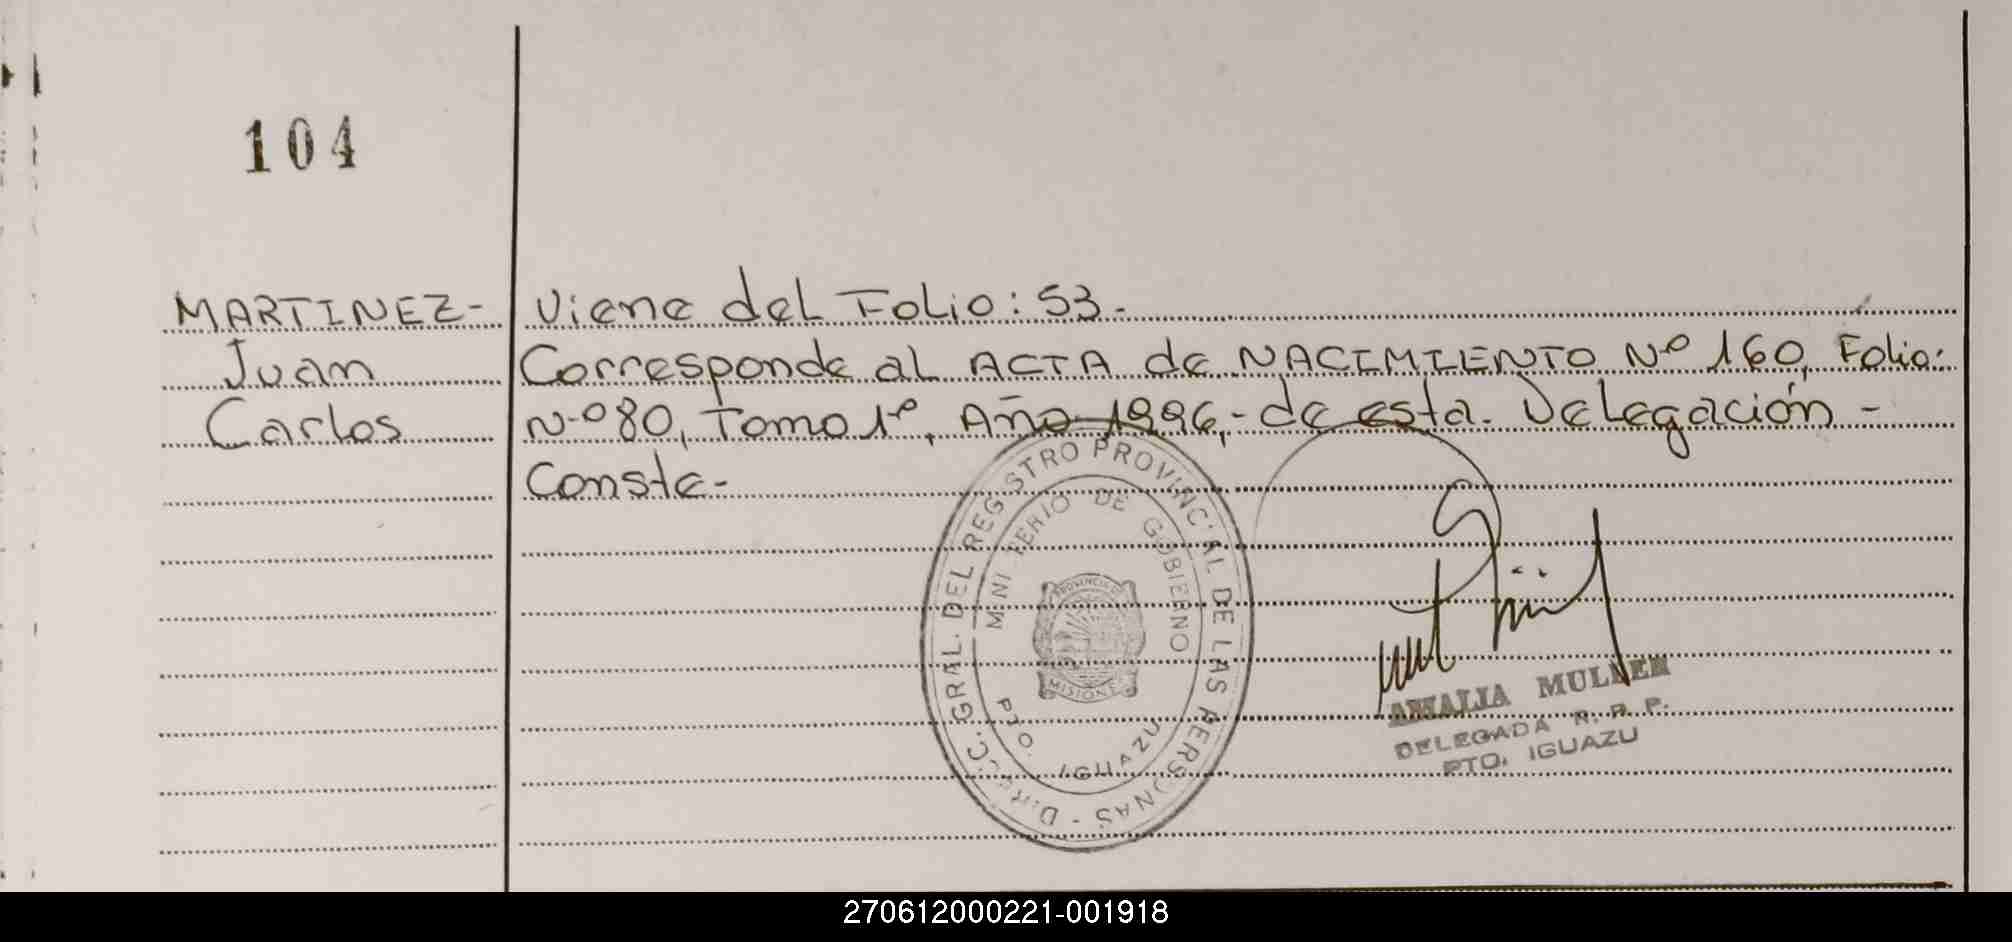 104
MARTINEZ- Viene del Folio: 53.-
Juan Corresponde al ACTA de NACIMIENTO Nº 160, Folio:
Carlos Nº 80, Tomo 1º, Año 1996,- de esta. Delegación -
Conste-
DIRECC. GRAL. DEL REGISTRO PROVINCIAL DE LAS PERSONAS -
MINISTERIO DE GOBIERNO
PROVINCIA D
MISIONES
PTO. IGUAZU
AMALIA MULLER
DELEGADA R. P. P.
PTO. IGUAZU
270612000221-001918